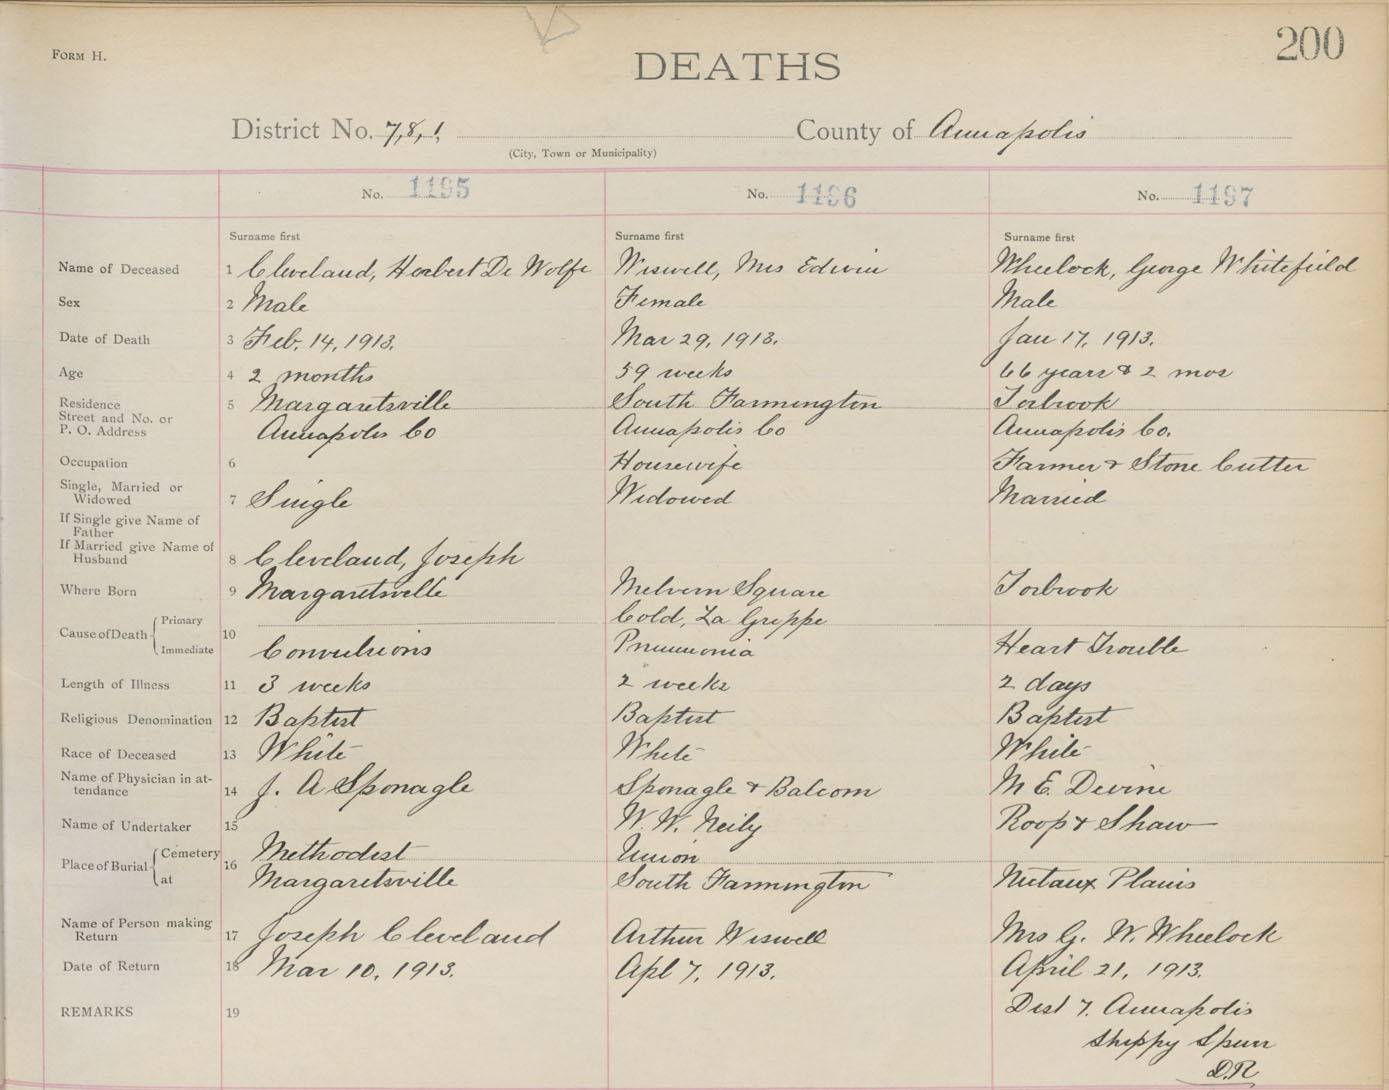 FORM H.
200
DEATHS
District No. 7, 8, 1, County of Annapolis
(City, Town or Municipality)
No. 1195 No. 1196 No. 1197
Surname first Surname first Surname first
Name of Deceased 1 Cleveland, Herbert De Wolfe Wiswell, Mrs Edwin Wheelock, George Whitefield
Sex 2 Male Female Male
Date of Death 3 Feb. 14, 1913. Mar 29, 1913. Jan 17, 1913.
Age 4 2 months 59 weeks 66 years & 2 mos
Residence 5 Margaretsville South Farmington Torbrook
Street and No. or
P. O. Address Annapolis Co Annapolis Co Annapolis Co.
Occupation 6 Housewife Farmer & Stone Cutter
Single, Married or
Widowed 7 Single Widowed Married
If Single give Name of
Father
If Married give Name of
Husband 8 Cleveland, Joseph
Where Born 9 Margaretsville Melvern Square Torbrook
Cause of Death Primary 10 Cold, La Grippe
Immediate Convulsions Pneumonia Heart Trouble
Length of Illness 11 3 weeks 2 weeks 2 days
Religious Denomination 12 Baptist Baptist Baptist
Race of Deceased 13 White White White
Name of Physician in at-
tendance 14 J. A Sponagle Sponagle & Balcom M E. Devine
Name of Undertaker 15 W. W. Neily Roop & Shaw
Place of Burial Cemetery 16 Methodist Union
at Margaretsville South Farmington Nictaux Plains
Name of Person making
Return 17 Joseph Cleveland Arthur Wiswell Mrs G. W. Wheelock
Date of Return 18 Mar 10, 1913. Apl 7, 1913. April 21, 1913.
REMARKS 19 Dist 7. Annapolis
Shippy Spurr
D.R